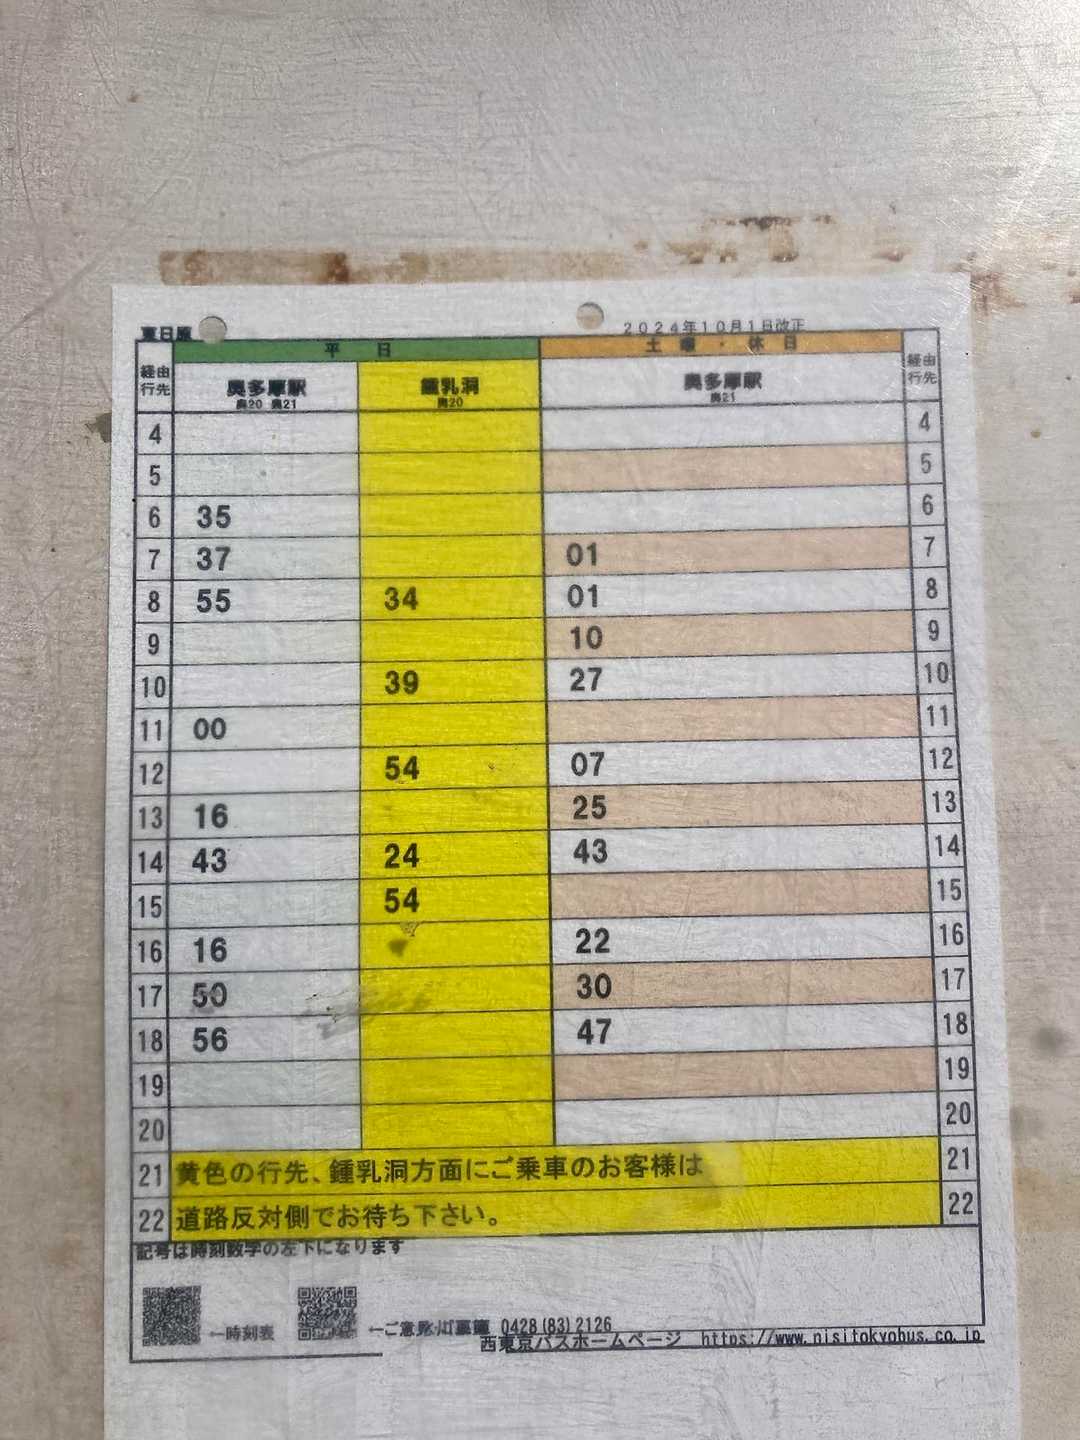 東日原
2024年10月1日改正
平 日 土 曜 ・ 休 日
経由 行先 奥多摩駅 奥20 奥21 鍾乳洞 奥20 奥多摩駅 奥21 経由 行先
4 4
5 5
6 35 6
7 37 01 7
8 55 34 01 8
9 10 9
10 39 27 10
11 00 11
12 54 07 12
13 16 25 13
14 43 24 43 14
15 54 15
16 16 22 16
17 50 30 17
18 56 47 18
19 19
20 20
21 黄色の行先、鍾乳洞方面にご乗車のお客様は 21
22 道路反対側でお待ち下さい。 22
記号は時刻数字の左下になります
←時刻表 ←ご意見 0428(83)2126
西東京バスホームページ https://www.nisitokyobus.co.jp